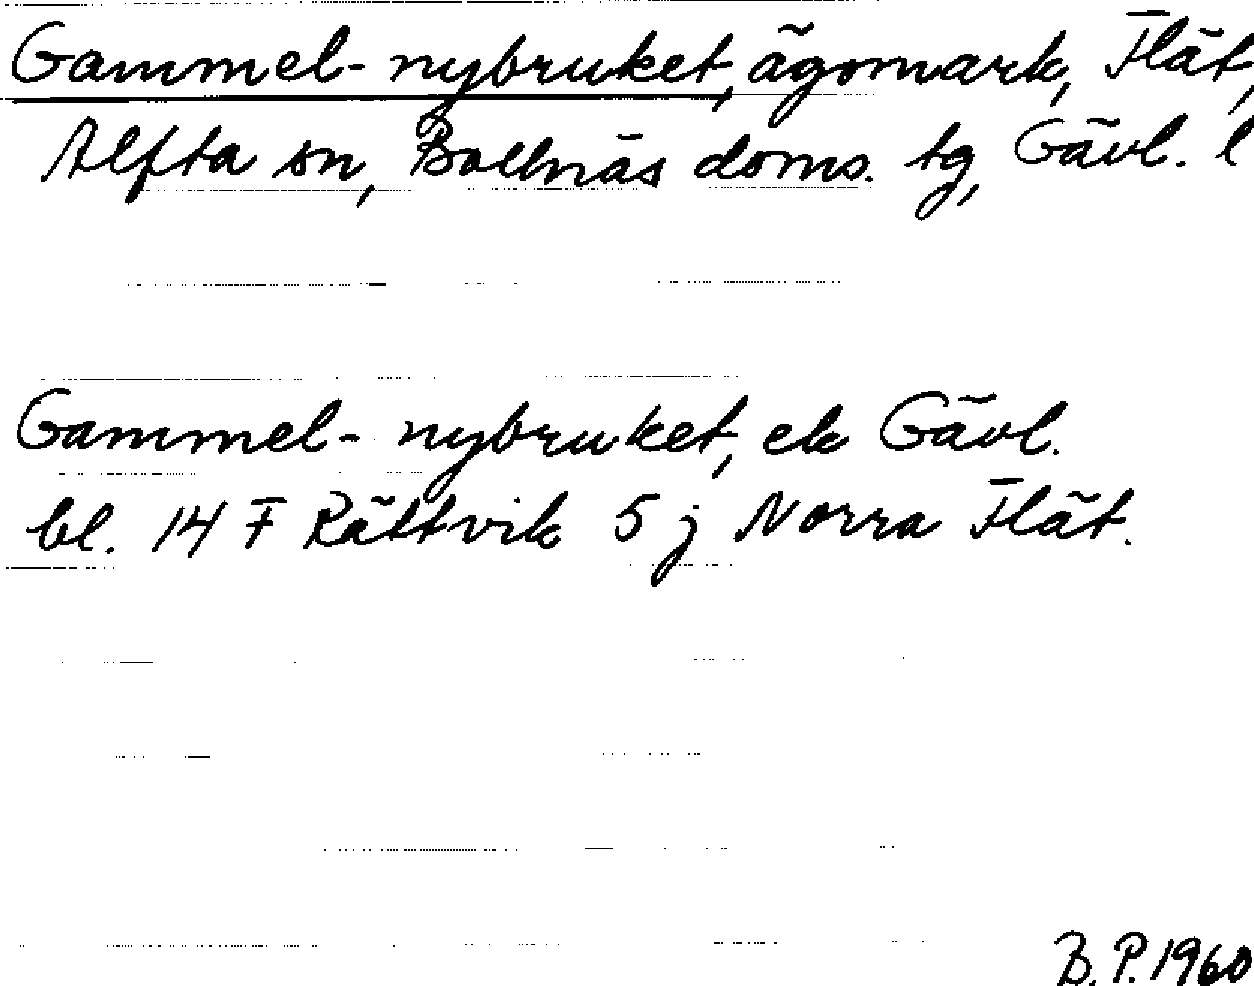 Gammel-nybruket, ägomark, Flät,
Alfta sn, Bollnäs doms. tg, Gävl. l
Gammel-nybruket, ek Gävl.
bl. 14 F Rättvik 5 j Norra Flät.
B. P. 1960